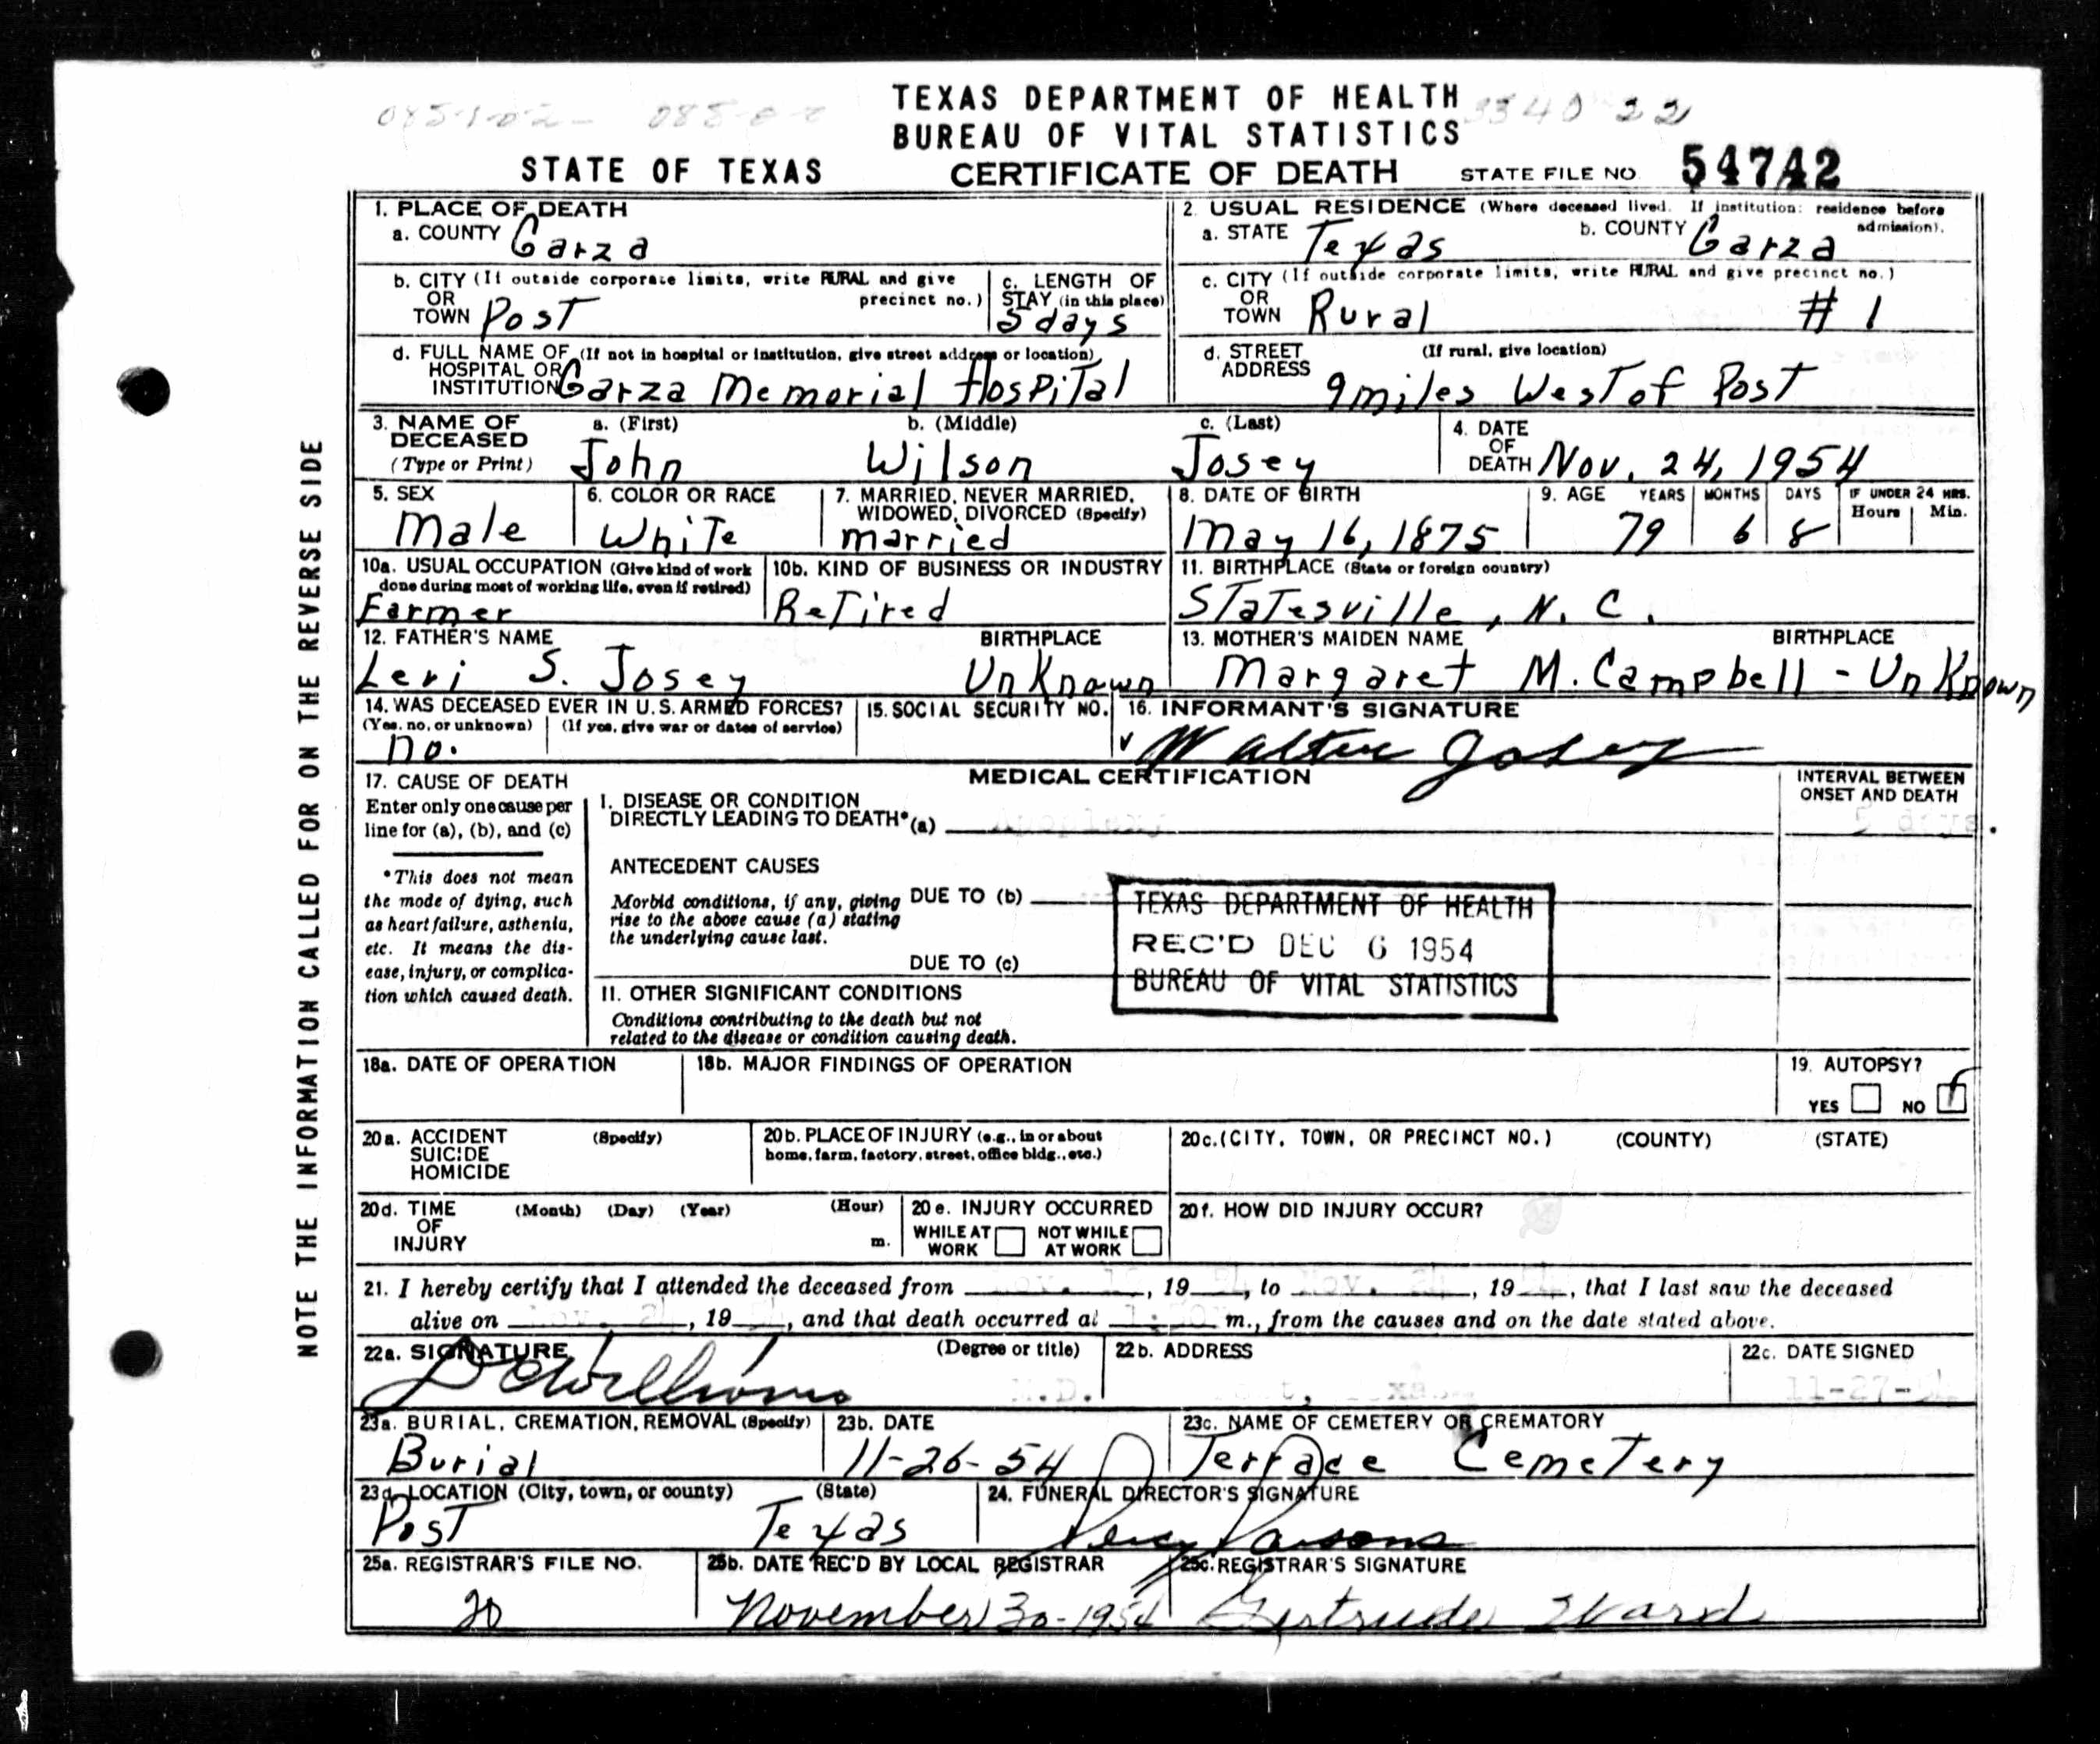 TEXAS DEPARTMENT OF HEALTH
BUREAU OF VITAL STATISTICS
STATE OF TEXAS CERTIFICATE OF DEATH STATE FILE NO. 54742
1. PLACE OF DEATH
a. COUNTY Garza
2. USUAL RESIDENCE (Where deceased lived. If institution: residence before admission).
a. STATE Texas b. COUNTY Garza
b. CITY (If outside corporate limits, write RURAL and give precinct no.)
OR TOWN Post
c. LENGTH OF STAY (in this place)
5 days
c. CITY (If outside corporate limits, write RURAL and give precinct no.)
OR TOWN Rural # 1
d. FULL NAME OF (If not in hospital or institution, give street address or location)
HOSPITAL OR INSTITUTION Garza Memorial Hospital
d. STREET ADDRESS (If rural, give location)
9 miles West of Post
3. NAME OF DECEASED (Type or Print)
a. (First) b. (Middle) c. (Last)
John Wilson Josey
4. DATE OF DEATH Nov. 24, 1954
5. SEX
Male
6. COLOR OR RACE
White
7. MARRIED, NEVER MARRIED, WIDOWED, DIVORCED (Specify)
married
8. DATE OF BIRTH
May 16, 1875
9. AGE YEARS MONTHS DAYS IF UNDER 24 HRS. Hours Min.
79 6 8
10a. USUAL OCCUPATION (Give kind of work done during most of working life, even if retired)
Farmer
10b. KIND OF BUSINESS OR INDUSTRY
Retired
11. BIRTHPLACE (State or foreign country)
Statesville, N. C.
12. FATHER'S NAME BIRTHPLACE
Levi S. Josey UnKnown
13. MOTHER'S MAIDEN NAME BIRTHPLACE
Margaret M. Campbell - UnKnown
14. WAS DECEASED EVER IN U.S. ARMED FORCES?
(Yes, no, or unknown) (If yes, give war or dates of service)
no.
15. SOCIAL SECURITY NO.
16. INFORMANT'S SIGNATURE
Walter Josey
17. CAUSE OF DEATH
Enter only one cause per line for (a), (b), and (c)
*This does not mean the mode of dying, such as heart failure, asthenia, etc. It means the disease, injury, or complication which caused death.
MEDICAL CERTIFICATION
INTERVAL BETWEEN ONSET AND DEATH
I. DISEASE OR CONDITION
DIRECTLY LEADING TO DEATH* (a)
5 days.
ANTECEDENT CAUSES
Morbid conditions, if any, giving rise to the above cause (a) stating the underlying cause last.
DUE TO (b)
DUE TO (c)
TEXAS DEPARTMENT OF HEALTH
REC'D DEC 6 1954
BUREAU OF VITAL STATISTICS
II. OTHER SIGNIFICANT CONDITIONS
Conditions contributing to the death but not related to the disease or condition causing death.
18a. DATE OF OPERATION
18b. MAJOR FINDINGS OF OPERATION
19. AUTOPSY?
YES NO
20a. ACCIDENT SUICIDE HOMICIDE (Specify)
20b. PLACE OF INJURY (e.g., in or about home, farm, factory, street, office bldg., etc.)
20c. (CITY, TOWN, OR PRECINCT NO.) (COUNTY) (STATE)
20d. TIME OF INJURY (Month) (Day) (Year) (Hour) m.
20e. INJURY OCCURRED
WHILE AT WORK NOT WHILE AT WORK
20f. HOW DID INJURY OCCUR?
21. I hereby certify that I attended the deceased from , 19 , to , 19 , that I last saw the deceased
alive on , 19 , and that death occurred at m., from the causes and on the date stated above.
22a. SIGNATURE (Degree or title)
D C Williams M.D.
22b. ADDRESS
22c. DATE SIGNED
11-27-54
23a. BURIAL, CREMATION, REMOVAL (Specify)
Burial
23b. DATE
11-26-54
23c. NAME OF CEMETERY OR CREMATORY
Terrace Cemetery
23d. LOCATION (City, town, or county) (State)
Post Texas
24. FUNERAL DIRECTOR'S SIGNATURE
Percy Parsons
25a. REGISTRAR'S FILE NO.
20
25b. DATE REC'D BY LOCAL REGISTRAR
November 30-1954
25c. REGISTRAR'S SIGNATURE
Gertrude Ward
NOTE THE INFORMATION CALLED FOR ON THE REVERSE SIDE